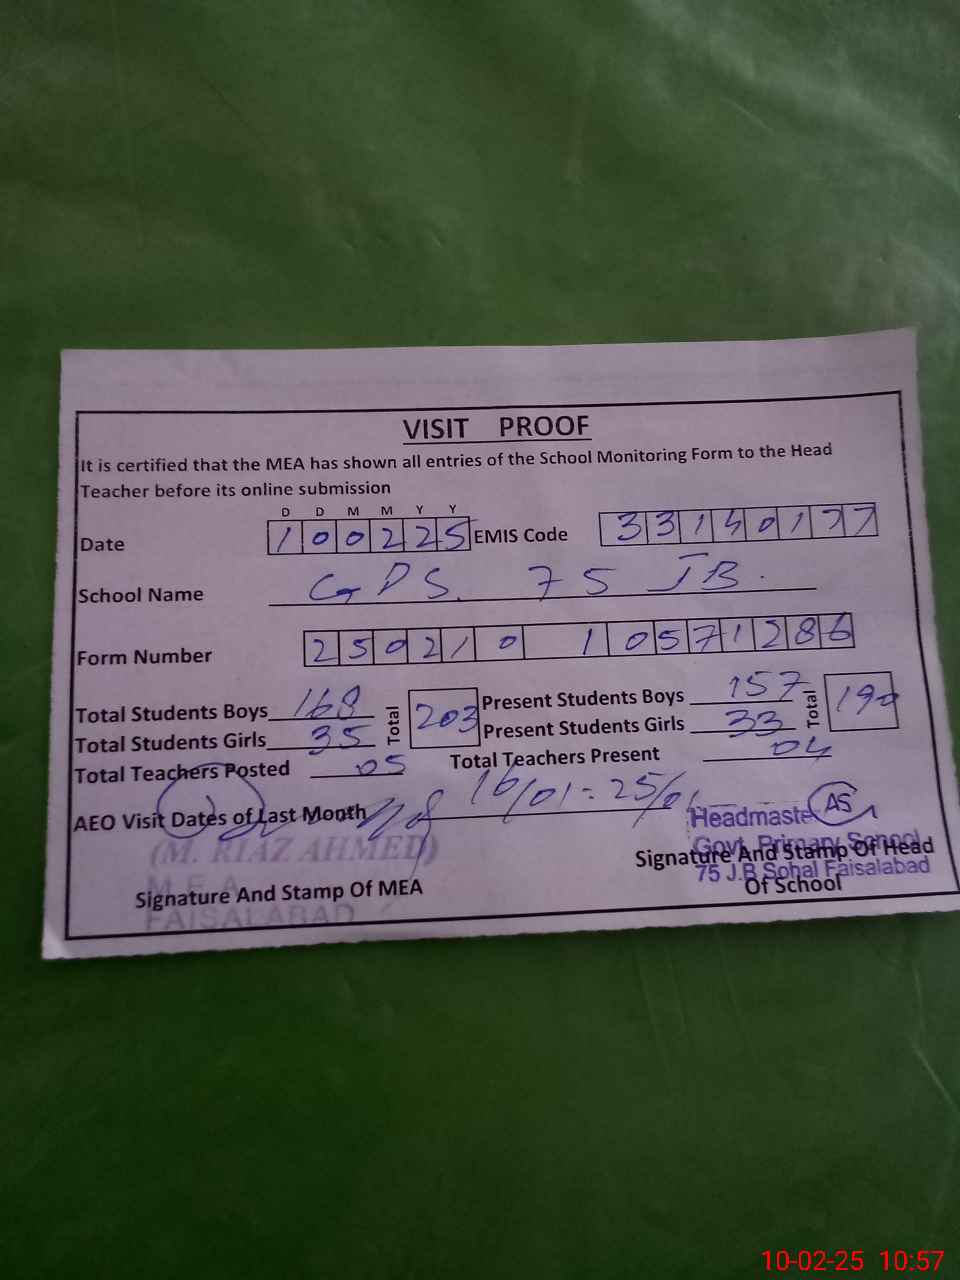 VISIT PROOF
It is certified that the MEA has shown all entries of the School Monitoring Form to the Head
Teacher before its online submission
D D M M Y Y
Date 100225 EMIS Code 33140177
School Name GPS. 75 JB.
Form Number 250210 10571286
Total Students Boys 168 Total 203 Present Students Boys 157 Total 190
Total Students Girls 35 Present Students Girls 33
Total Teachers Posted 05 Total Teachers Present 04
AEO Visit Dates of Last Month 16/01 = 25/01
(M. RIAZ AHMED)
M.E.A
FAISALABAD
Signature And Stamp Of MEA
AS
Headmaster
Govt. Primary School
75 J.B Sohal Faisalabad
Signature And Stamp Of Head
Of School
10-02-25 10:57